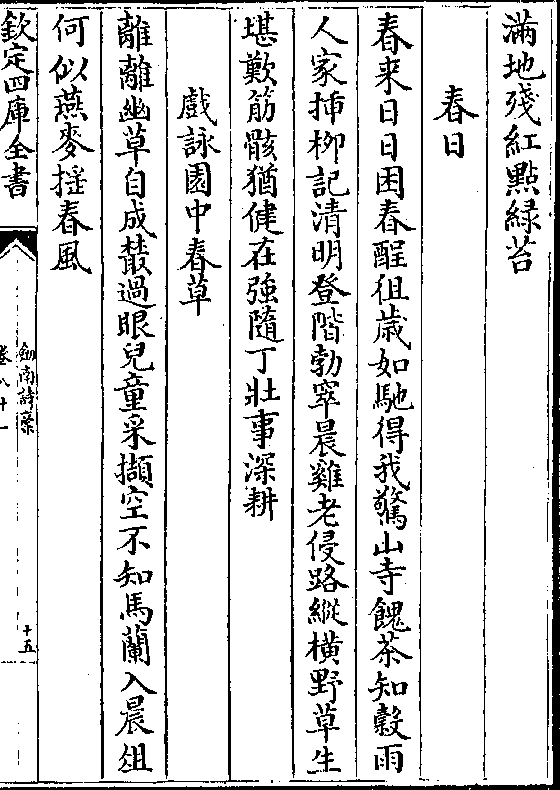 滿地殘紅點緑苔
春日
春来日日困春酲徂歳如馳得我驚山寺餽茶知穀雨
人家揷栁記清明登階勃窣晨雞老侵路縱横野草生
堪歎筋骸猶健在強隨丁壯事深耕
戲詠園中春草
離離幽草自成叢過眼兒童采擷空不知馬蘭入晨俎
何似燕麥揺春風
欽定四庫全書
劎南詩藁
卷八十一
十五